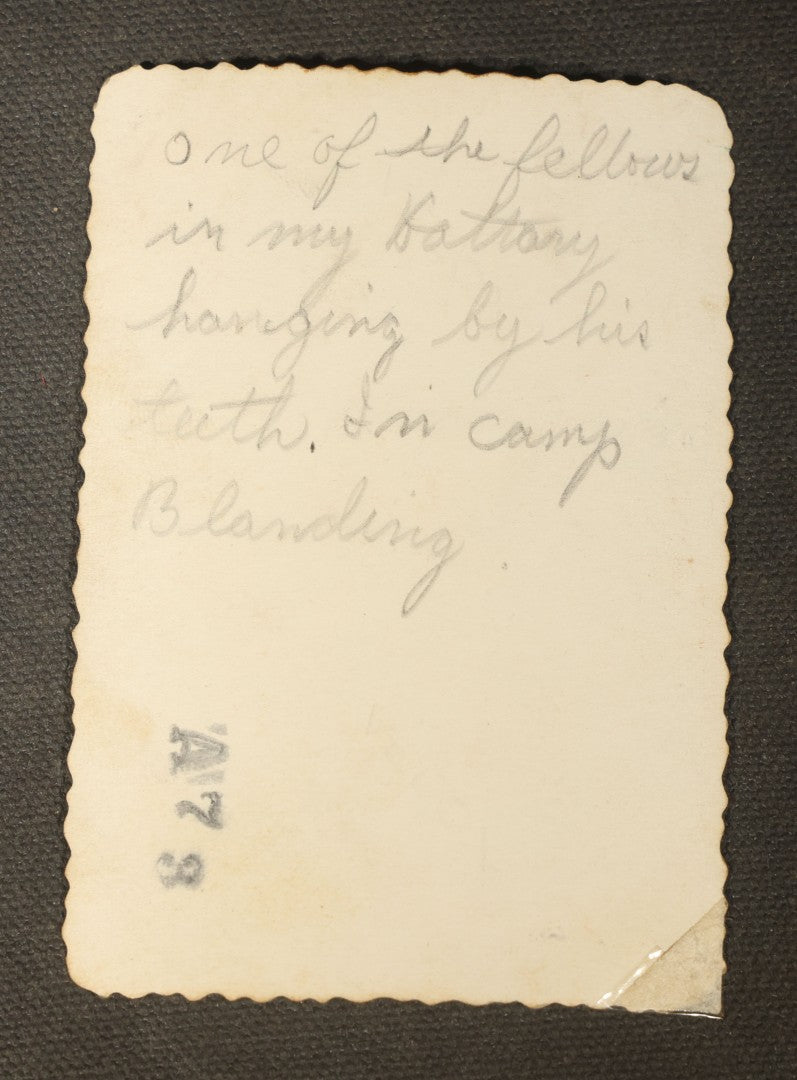 One of the fellows
in my Battary
hanging by his
teeth. In camp
Blanding
A78